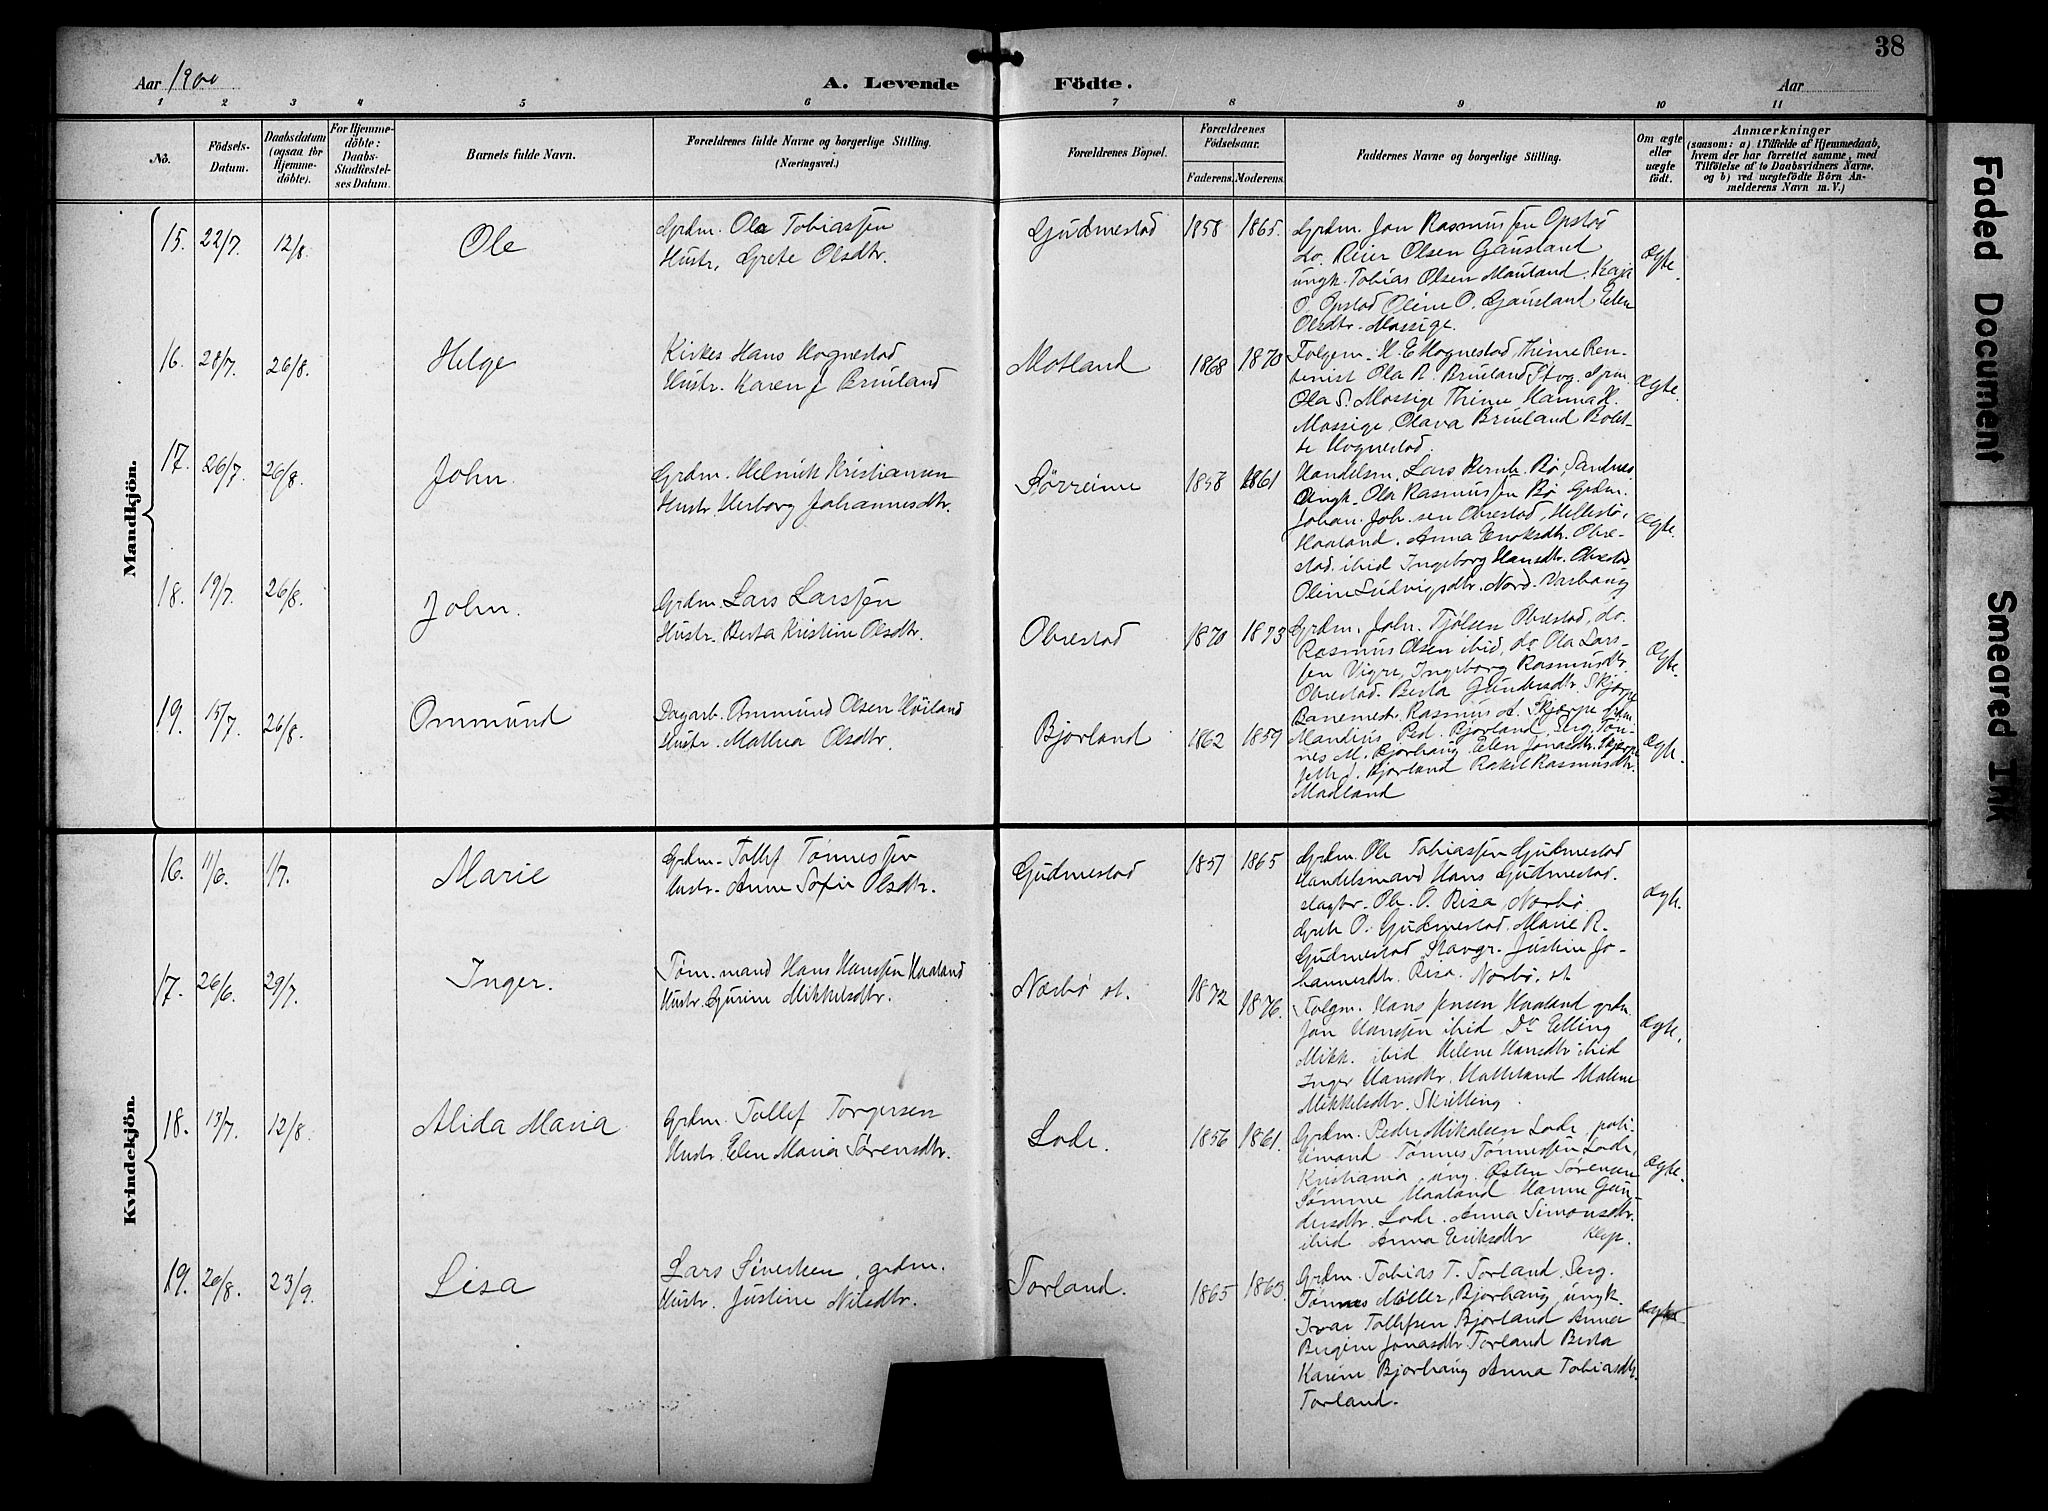 38
Aar 1900
A. Levende Födte.
Aar
1 2 3 4 5 6 7 8 9 10 11
No.
Födsels-Datum.
Daabsdatum (ogsaa for Hjemme-döbte).
For Hjemme-döbte: Daabs-Stadfæstel-ses Datum.
Barnets fulde Navn.
Forældrenes fulde Navne og borgerlige Stilling. (Næringsvei.)
Forældrenes Bopæl.
Forældrenes Födselsaar.
Faderens. Moderens.
Faddernes Navne og borgerlige Stilling.
Om ægte eller uægte födt.
Anmærkninger
(saasom: a) i Tilfælde af Hjemmedaab, hvem der har forrettet samme, med Tilföielse af to Daabsvidners Navne. og b) ved uægtefödte Börn An-melderens Navn m. V.)
Mandkjön.
15. 22/7 12/8 Ole
Grdm. Ola Tobiassen
Hustr. Grete Olsdtr.
Gudmestad 1858 1865.
Grdm. Jan Rasmussen Opstad
do. Reier Olsen Gausland
ungk. Tobias Olsen Mauland, Kaja
O. Opstad Oline O. Gausland, Elen
Olsdtr. Mossige.
ægte.
16. 28/7. 26/8. Helge
Kirkes Hans Hognestad
Hustr. Karen J Bruland
Motland 1868 1870
Folgem. H. E Hognestad, Thime Ren-
tenist Ola R. Bruland Stvg. Grm.
Ola S. Mossige Thime Hanna H.
Mossige, Olava Bruland Bolet-
te Hognestad.
ægte.
17. 26/7. 26/8. John
Grdm. Helmick Kristiansen
Hustr. Herborg Johannesdtr.
Sörreime 1858 1861
Handelsm. Lars Bernh. Bø, Sandnes
Ungk. Ola Rasmussen Bø Grdm.
Johan. Joh.sen Obrestad, Hellestø,
Haaland. Anna Enoksdtr. Obre-
stad ibid Ingeborg Hansdtr. Obrestad
Oline Ludvigsdtr. Nord. Varhaug
ægte.
18. 19/7. 26/8. John.
Grdm. Lars Larssen
Hustr. Berta Kristine Olsdtr.
Obrestad 1870 1873
Grdm. Joh. Tjølsen Obrestad, do.
Rasmus Olsen ibid, do Ola Lars-
sen Vigre, Ingeborg Rasmusdtr.
Obrestad. Berta Gundersdtr. Skjærpe
ægte.
19. 15/7. 26/8. Ommund
Dagarb. Ommund Olsen Høiland
Hustr. Mathea Olsdtr.
Bjorland 1862 1859
Banemestr. Rasmus A. Skjærpe grdm.
Mandius Ped. Bjorland, Serg. Tøn-
nes M. Bjorhaug Elen Jonasdtr. Skjærpe
J. Bjorland Rakel Rasmusdtr.
Madland
ægte.
Kvindekjön.
16. 11/6. 1/7. Marie
Grdm. Tollef Tønnessen
Hustr. Anne Sofie Olsdtr.
Gudmestad 1851 1865
Grdm. Ole Tobiassen Gudmestad
Handelsmand Hans Gudmestad.
slagtr. Ole. O. Risa Nærbø
Grete O. Gudmestad, Marie R.
Gudmestad Stavgr. Justine Jo-
hannesdtr. Risa. Nærbø. st
ægte.
17. 26/6. 29/7. Inger.
Tøm.mand Hans Hanssen Haaland
Hustr. Gurine Mikkelsdtr.
Nærbø st. 1872 1876.
Folgm. Hans Jensen Haaland grdm
Jan Hanssen ibid, Do Elling
Mikk. ibid Helene Hansdtr ibid
Inger Hansdtr. Hatteland Malene
Mikkelsdtr. Skretting.
ægte.
18. 13/7. 12/8. Alida Maria
Grdm. Tollef Torgersen
Hustr. Elen Maria Sørensdtr.
Lode. 1856 1861.
Grdm. Peder Mikalsen Lode, poli-
timand Tønnes Tønnessen Lode,
Kristiania, ung. Østen Sørensen
Sømme Haaland Hanne Gun-
dersdtr. Lode. Anna Simonsdtr.
ibid Anna Eriksdtr Klep.
ægte.
19. 20/8. 23/9. Lisa
Lars Sivertsen, grdm.
Hustr. Justine Nilsdtr.
Torland. 1865 1863.
Grdm. Tobias T. Torland, Serg.
Tønnes Møller, Bjorhaug, ungk.
Ivar Tollefsen Bjorland Anna
Bergine Jonasdtr Torland Berta
Karine Bjorhaug Anna Tobiasdtr.
Torland.
ægte
Faded Document
Smeared Ink